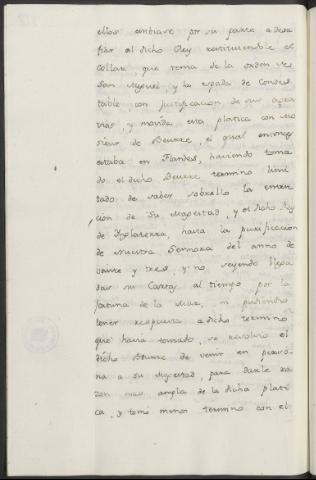 ellos embiase por su parte a desa
fiar al dicho Rey restituiendole el
Collar, que tenia de la orden de
San Miguel, y la espada de Condes
table, con justificacion de sus agra
vios, y movida esta platica con Mo
siur de Beurre, el qual entonçes
estaba en Flandes, haviendo toma
do el dicho Beurre termino limi
tado de saber sobrello la inten
çion de Su Magestad, y el dicho Rey
de Ynglaterra, hasta la purificacion
de nuestra Sennora del anno de
veinte y tres, y no seyendo llega
das sus Cartas al tiempo por la
fortuna de la Mar, ni pudiendo
tener respuesta a dicho termino
que havia tomado, se resolvio el
dicho Beurre de venir en perso
na a Su Magestad, para darle ra
zon mas ampla de la dicha plati
ca, y tomó menos termino con el